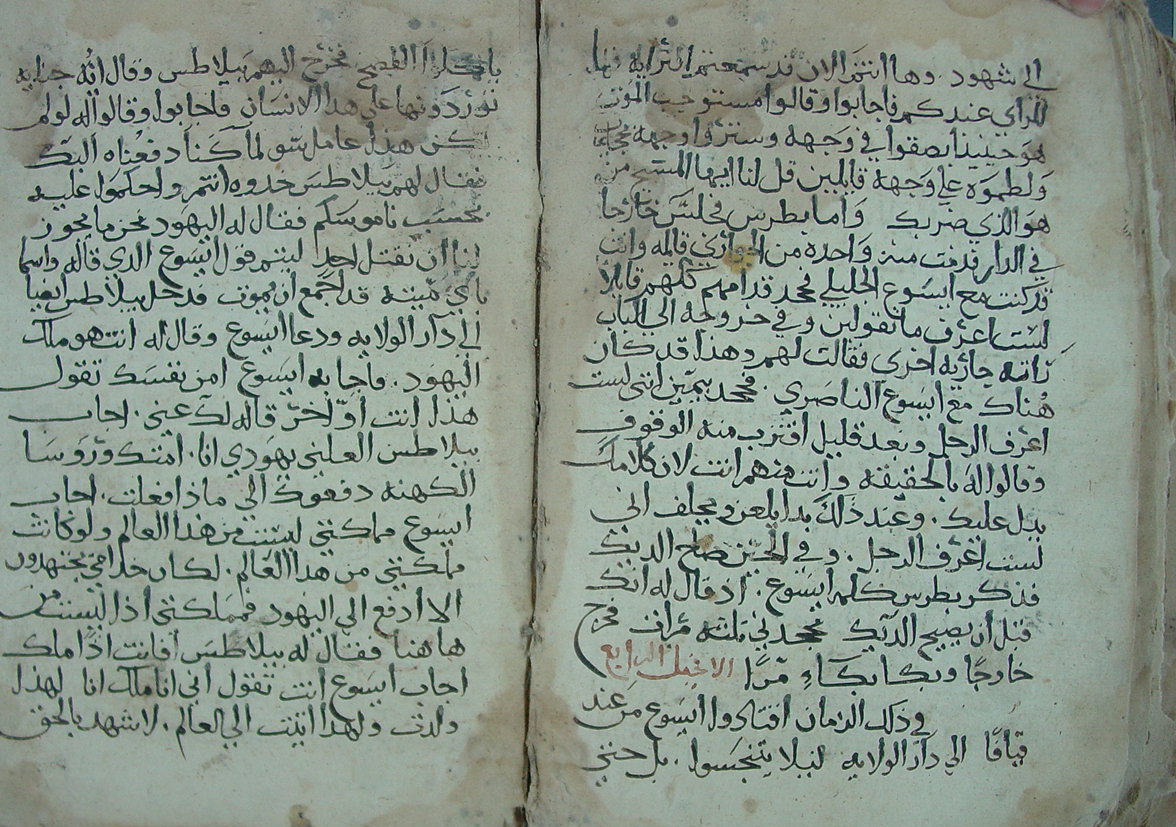 الى شهود. وها انتم الان قد سمعتم افتراه فما
الراي عندكم فاجابوا وقالوا مستوجب الموت
هو حينيذ ابصقوا في وجهه وستروا وجهه
ولطموه علي وجهه قايلين قل لنا ايها المسيح من
هو الذي ضربك واما بطرس فجلس خارجا
في الدار فدنت منه واحده من الجواري قايله وانت
قد كنت مع ايسوع الجليلي فجحد قدامهم كلهم قايلا
لست اعرف ما تقولين وفي خروجه الي الباب
راته جاريه اخري فقالت لهم وهذا قد كان
هناك مع ايسوع الناصري. فجحد بيمين انني لست
اعرف الرجل وبعد قليل اقترب منه الوقوف
وقالوا له بالحقيقه وانت منهم انت لان كلامك
يدل عليك. وعند ذلك بدا يلعن ويحلف اني
لست اعرف الرجل. وفي الحين صاح الديك
فذكر بطرس كلمه ايسوع. اذ قال له انك
قبل أن يصيح الديك تجحدني ثلثه مرات فخرج
خارجا وبكا بكاء مرا الانجيل الرابع
في ذلك الزمان اقتادوا ايسوع من عند
قيافا الي دار الولايه ليلا يتنجسوا. بل حتي
ياكلوا الفصح فخرج اليهم بيلاطس وقال ايه جنايه
توردونها علي هذا الانسان فاجابوا وقالوا له لو لم
يكن هذا عامل سو لما كنا دفعناه اليك
فقال لهم بيلاطس خدوه انتم واحكموا عليه
بحسب ناموسكم فقال له اليهود نحن ما يجوز
لنا ان نقتل احدا ليتم قول ايسوع الدي قاله واسما
باي ميته قد اجمع ان يموت فدخل بيلاطس ايضا
الي دار الولايه ودعا ايسوع وقال له انت هو ملك
اليهود. فاجابه ايسوع امن نفسك تقول
هذا انت او اخر قاله لك عني. اجاب
بيلاطس العلني يهودي انا. امتك وروسا
الكهنه دفعوك الي ماذا فعلت. اجاب
ايسوع مملكتي ليست من هذا العالم ولو كانت
مملكتي من هذا العالم. لكان خدامي يجتهدون
الا ادفع الي اليهود فمملكتي اذا ليست من
هاهنا فقال له بيلاطس افانت اذا ملك
اجاب ايسوع انت تقول اني انا ملك انا لهذا
ولدت ولهذا اتيت الي العالم. لاشهد بالحق